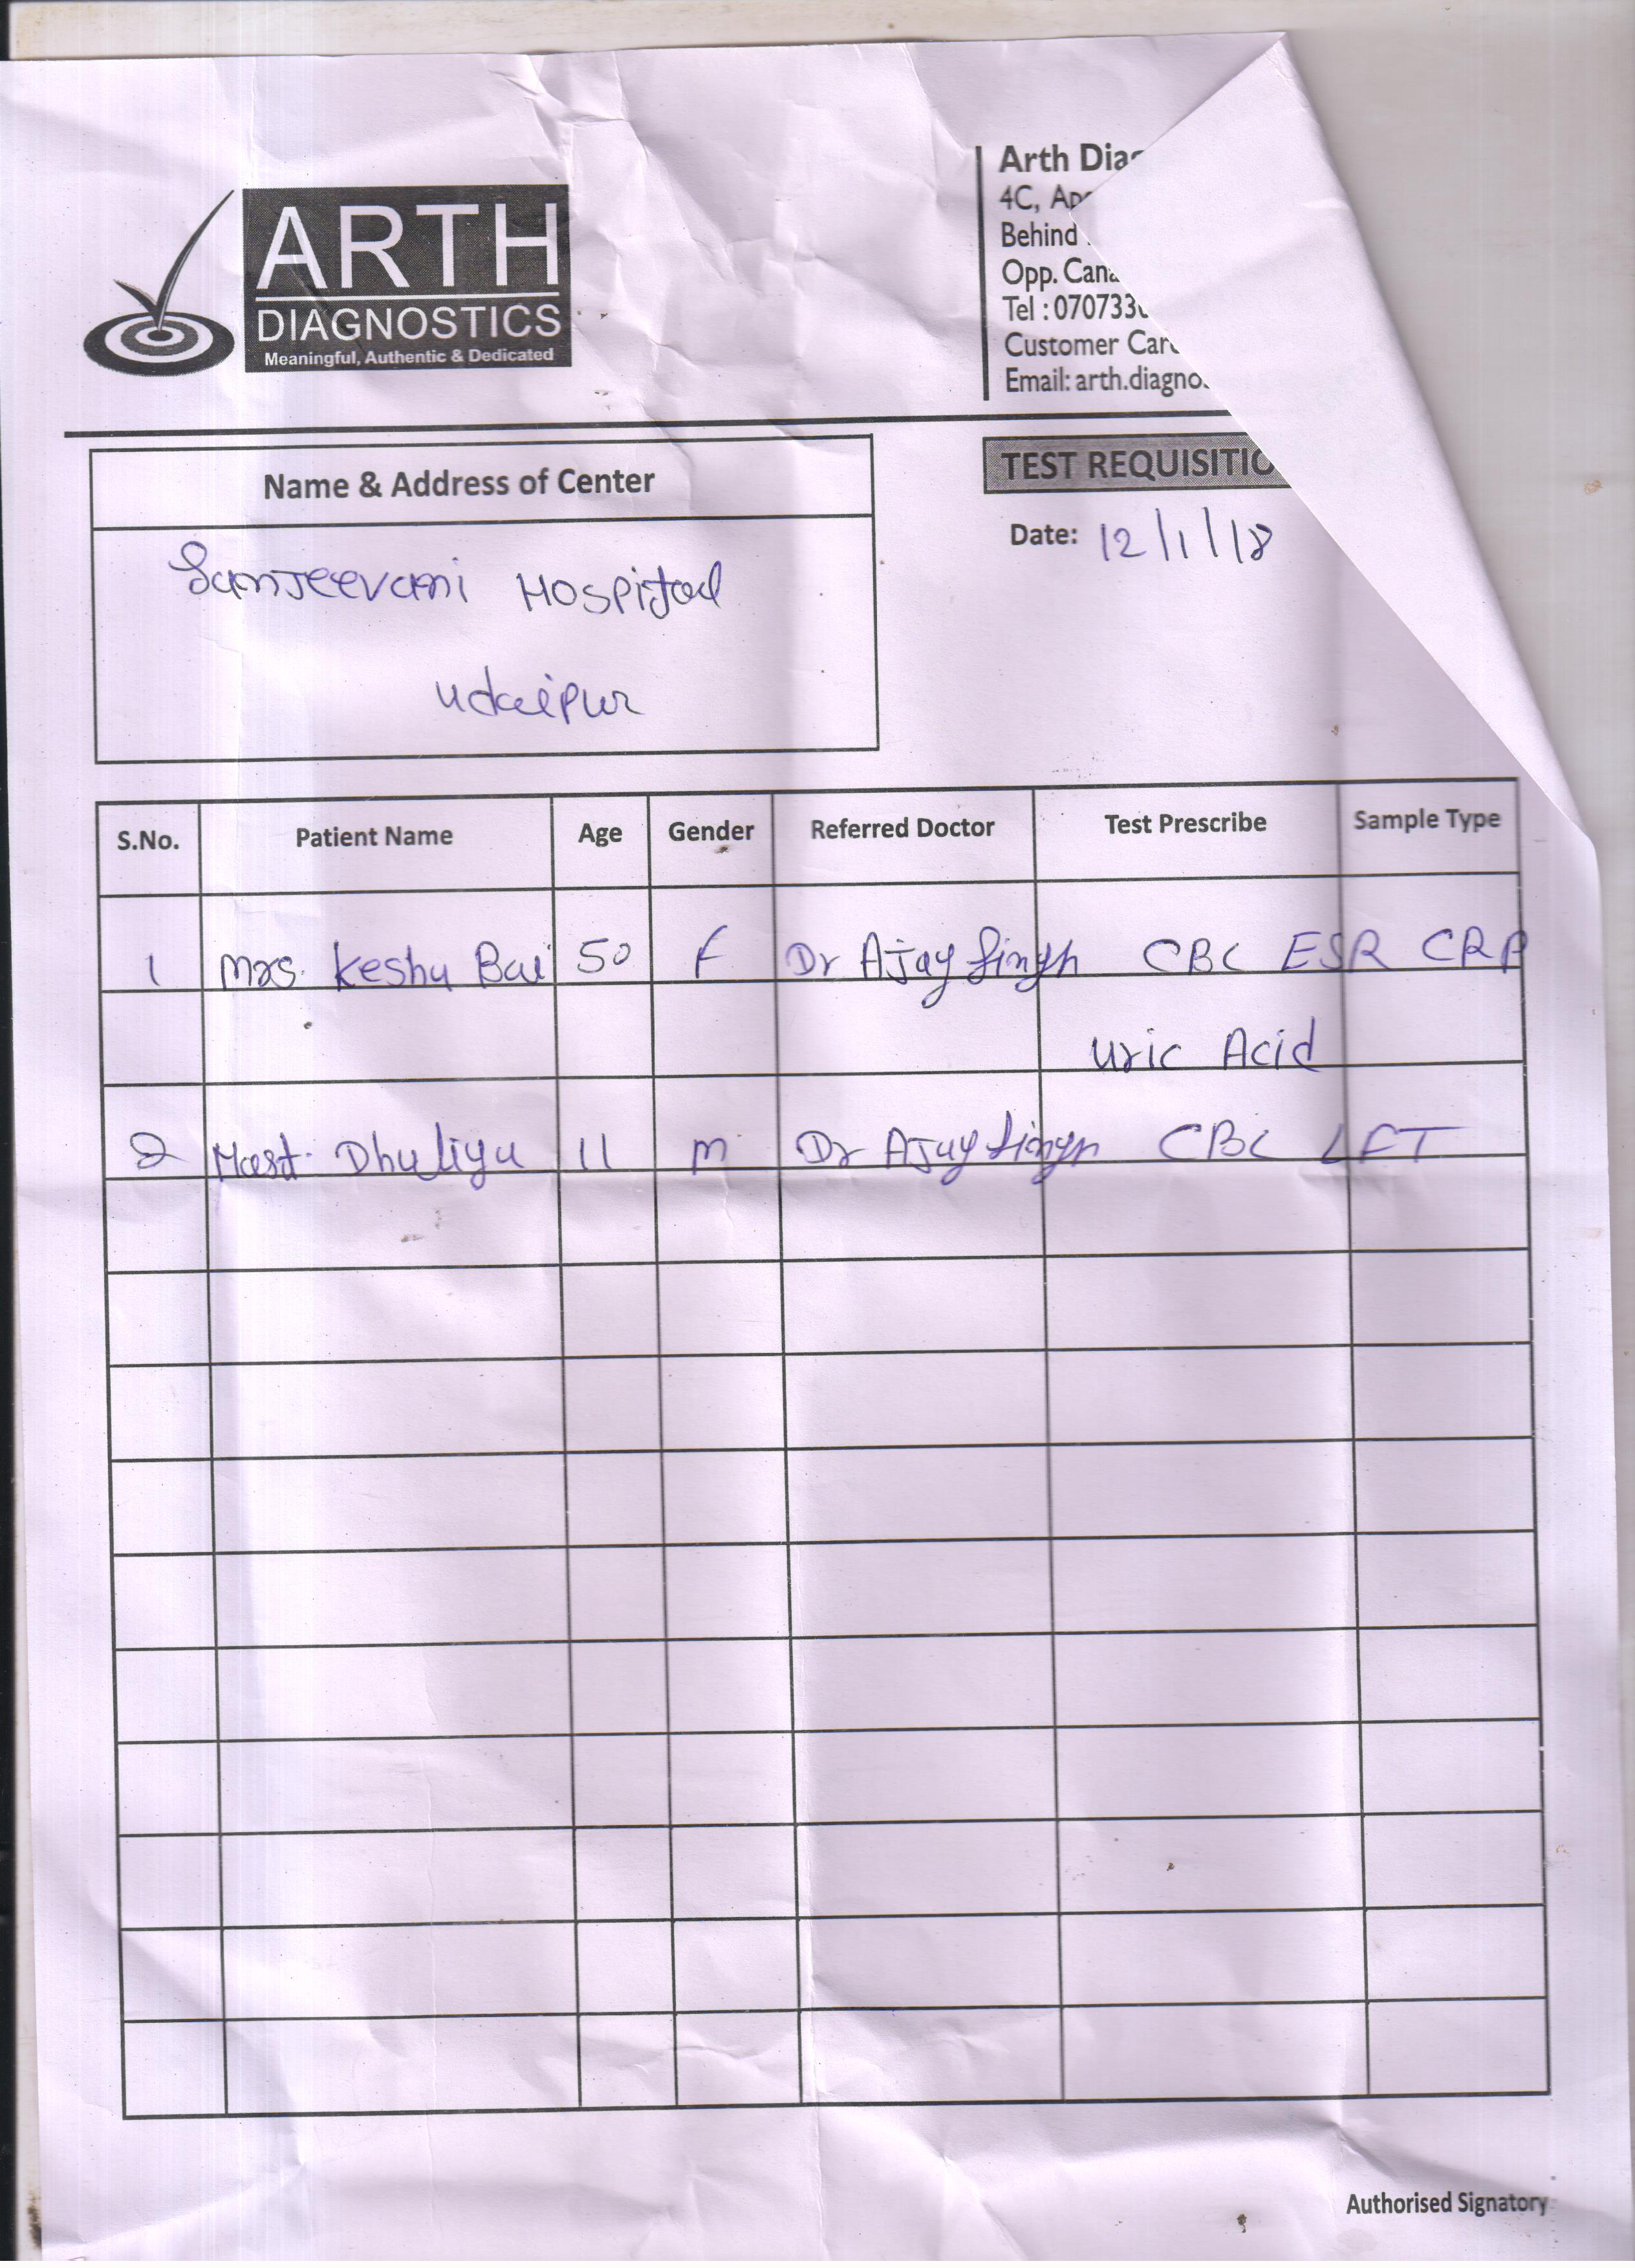 ARTH
DIAGNOSTICS
Meaningful, Authentic & Dedicated
Arth
4C,
Behind
Opp.
Tel :
Customer
Email:
Name & Address of Center
Sanjeevani Hospital
Udaipur
TEST
Date: 12/1/18
S.No. Patient Name Age Gender Referred Doctor Test Prescribe Sample Type
1 Mrs. Keshu Bai 50 F Dr Ajay Singh CBC ESR CRP
Uric Acid
2 Mast. Dhuliya 11 M Dr Ajay Singh CBC LFT
Authorised Signatory